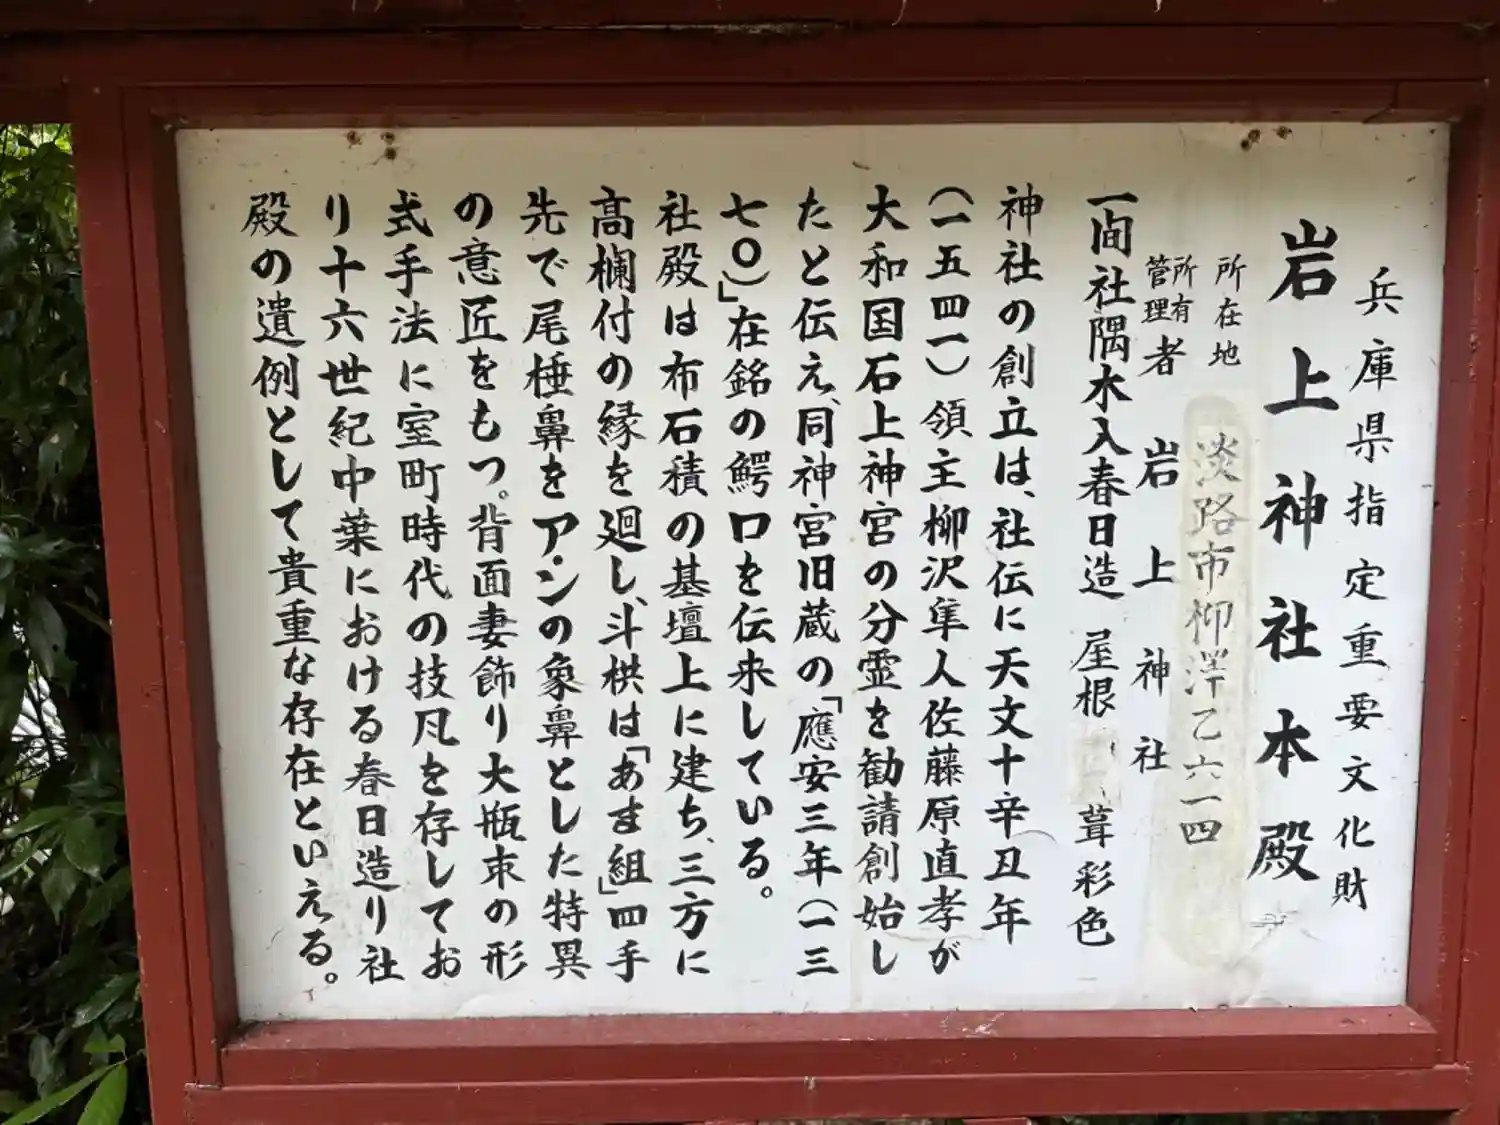 兵庫県指定重要文化財
岩上神社本殿
所在地 淡路市柳澤乙六一四
所有
管理者 岩上神社
一間社隅木入春日造 屋根 葺彩色
神社の創立は、社伝に天文十辛丑年
(一五四一)領主柳沢隼人佐藤原直孝が
大和国石上神宮の分霊を勧請創始し
たと伝え、同神宮旧蔵の「應安三年(一三
七〇)」在銘の鰐口を伝来している。
社殿は布石積の基壇上に建ち、三方に
高欄付の縁を廻し、斗栱は「あま組」四手
先で尾棰鼻をア・ンの象鼻とした特異
の意匠をもつ。背面妻飾り大瓶束の形
式手法に室町時代の技凡を存してお
り十六世紀中葉における春日造り社
殿の遺例として貴重な存在といえる。